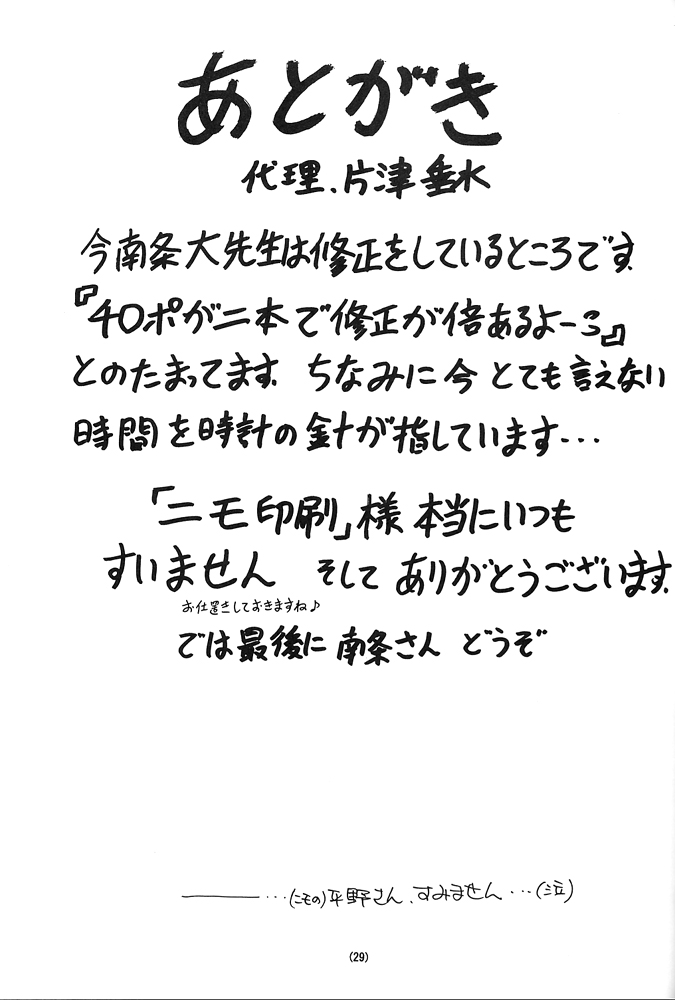 あとがき
代理、片津垂水
今南条大先生は修正をしているところです。
『40ポが二本で修正が倍あるよーう』
とのたまってます。ちなみに今 とても言えない
時間を時計の針が指しています…
「ニモ印刷」様 本当にいつも
すいません そして ありがとうございます。
お仕置きしておきますね♪
では最後に 南条さん どうぞ
―――…(ニモの)平野さん、すみません…(泣)
(29)